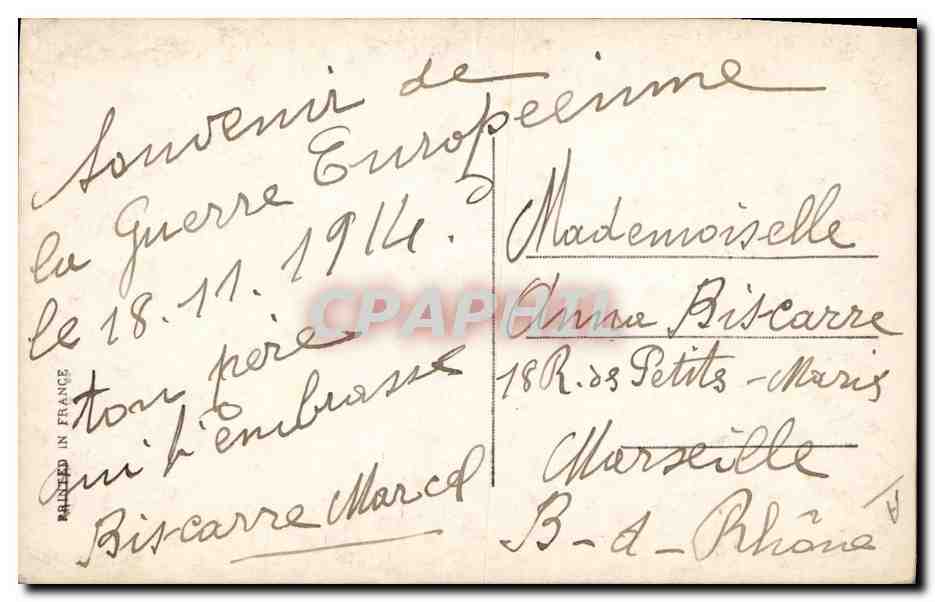 Souvenir de
la Guerre Européenne
le 18.11.1914.
ton père
qui t'embrasse
Biscarre Marcel
Mademoiselle
Anna Biscarre
18 R. des Petits-Maries
Marseille
B-d-Rhône
PRINTED IN FRANCE
CPAPHIL